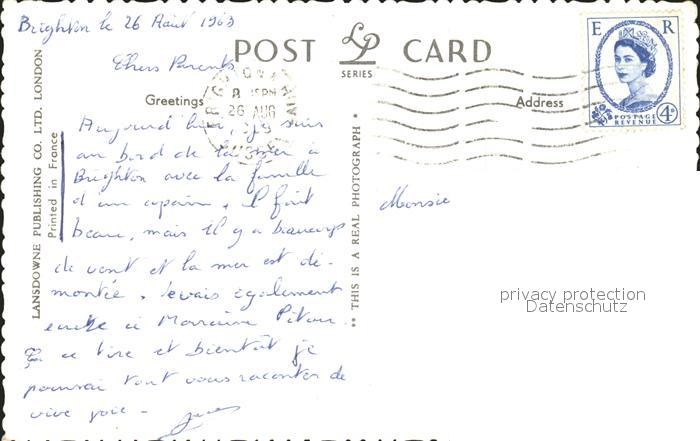 Brighton le 26 Août 1963
POST LP CARD
SERIES
Chers Parents
Greetings
Address
E R
POSTAGE
REVENUE
4D
8 15PM
26 AUG
LANSDOWNE PUBLISHING CO. LTD. LONDON
Printed in France
** THIS IS A REAL PHOTOGRAPH *
Aujourd'hui, je suis
au bord de la mer à
Brighton avec la famille
d'un copain, il fait
beau, mais il y a beaucoup
de vent et la mer est dé-
montée. Je vais également
à Marraine
ce tire et bientôt je
pourrai tout vous raconter de
vive voix -
Monsie
privacy protection
Datenschutz